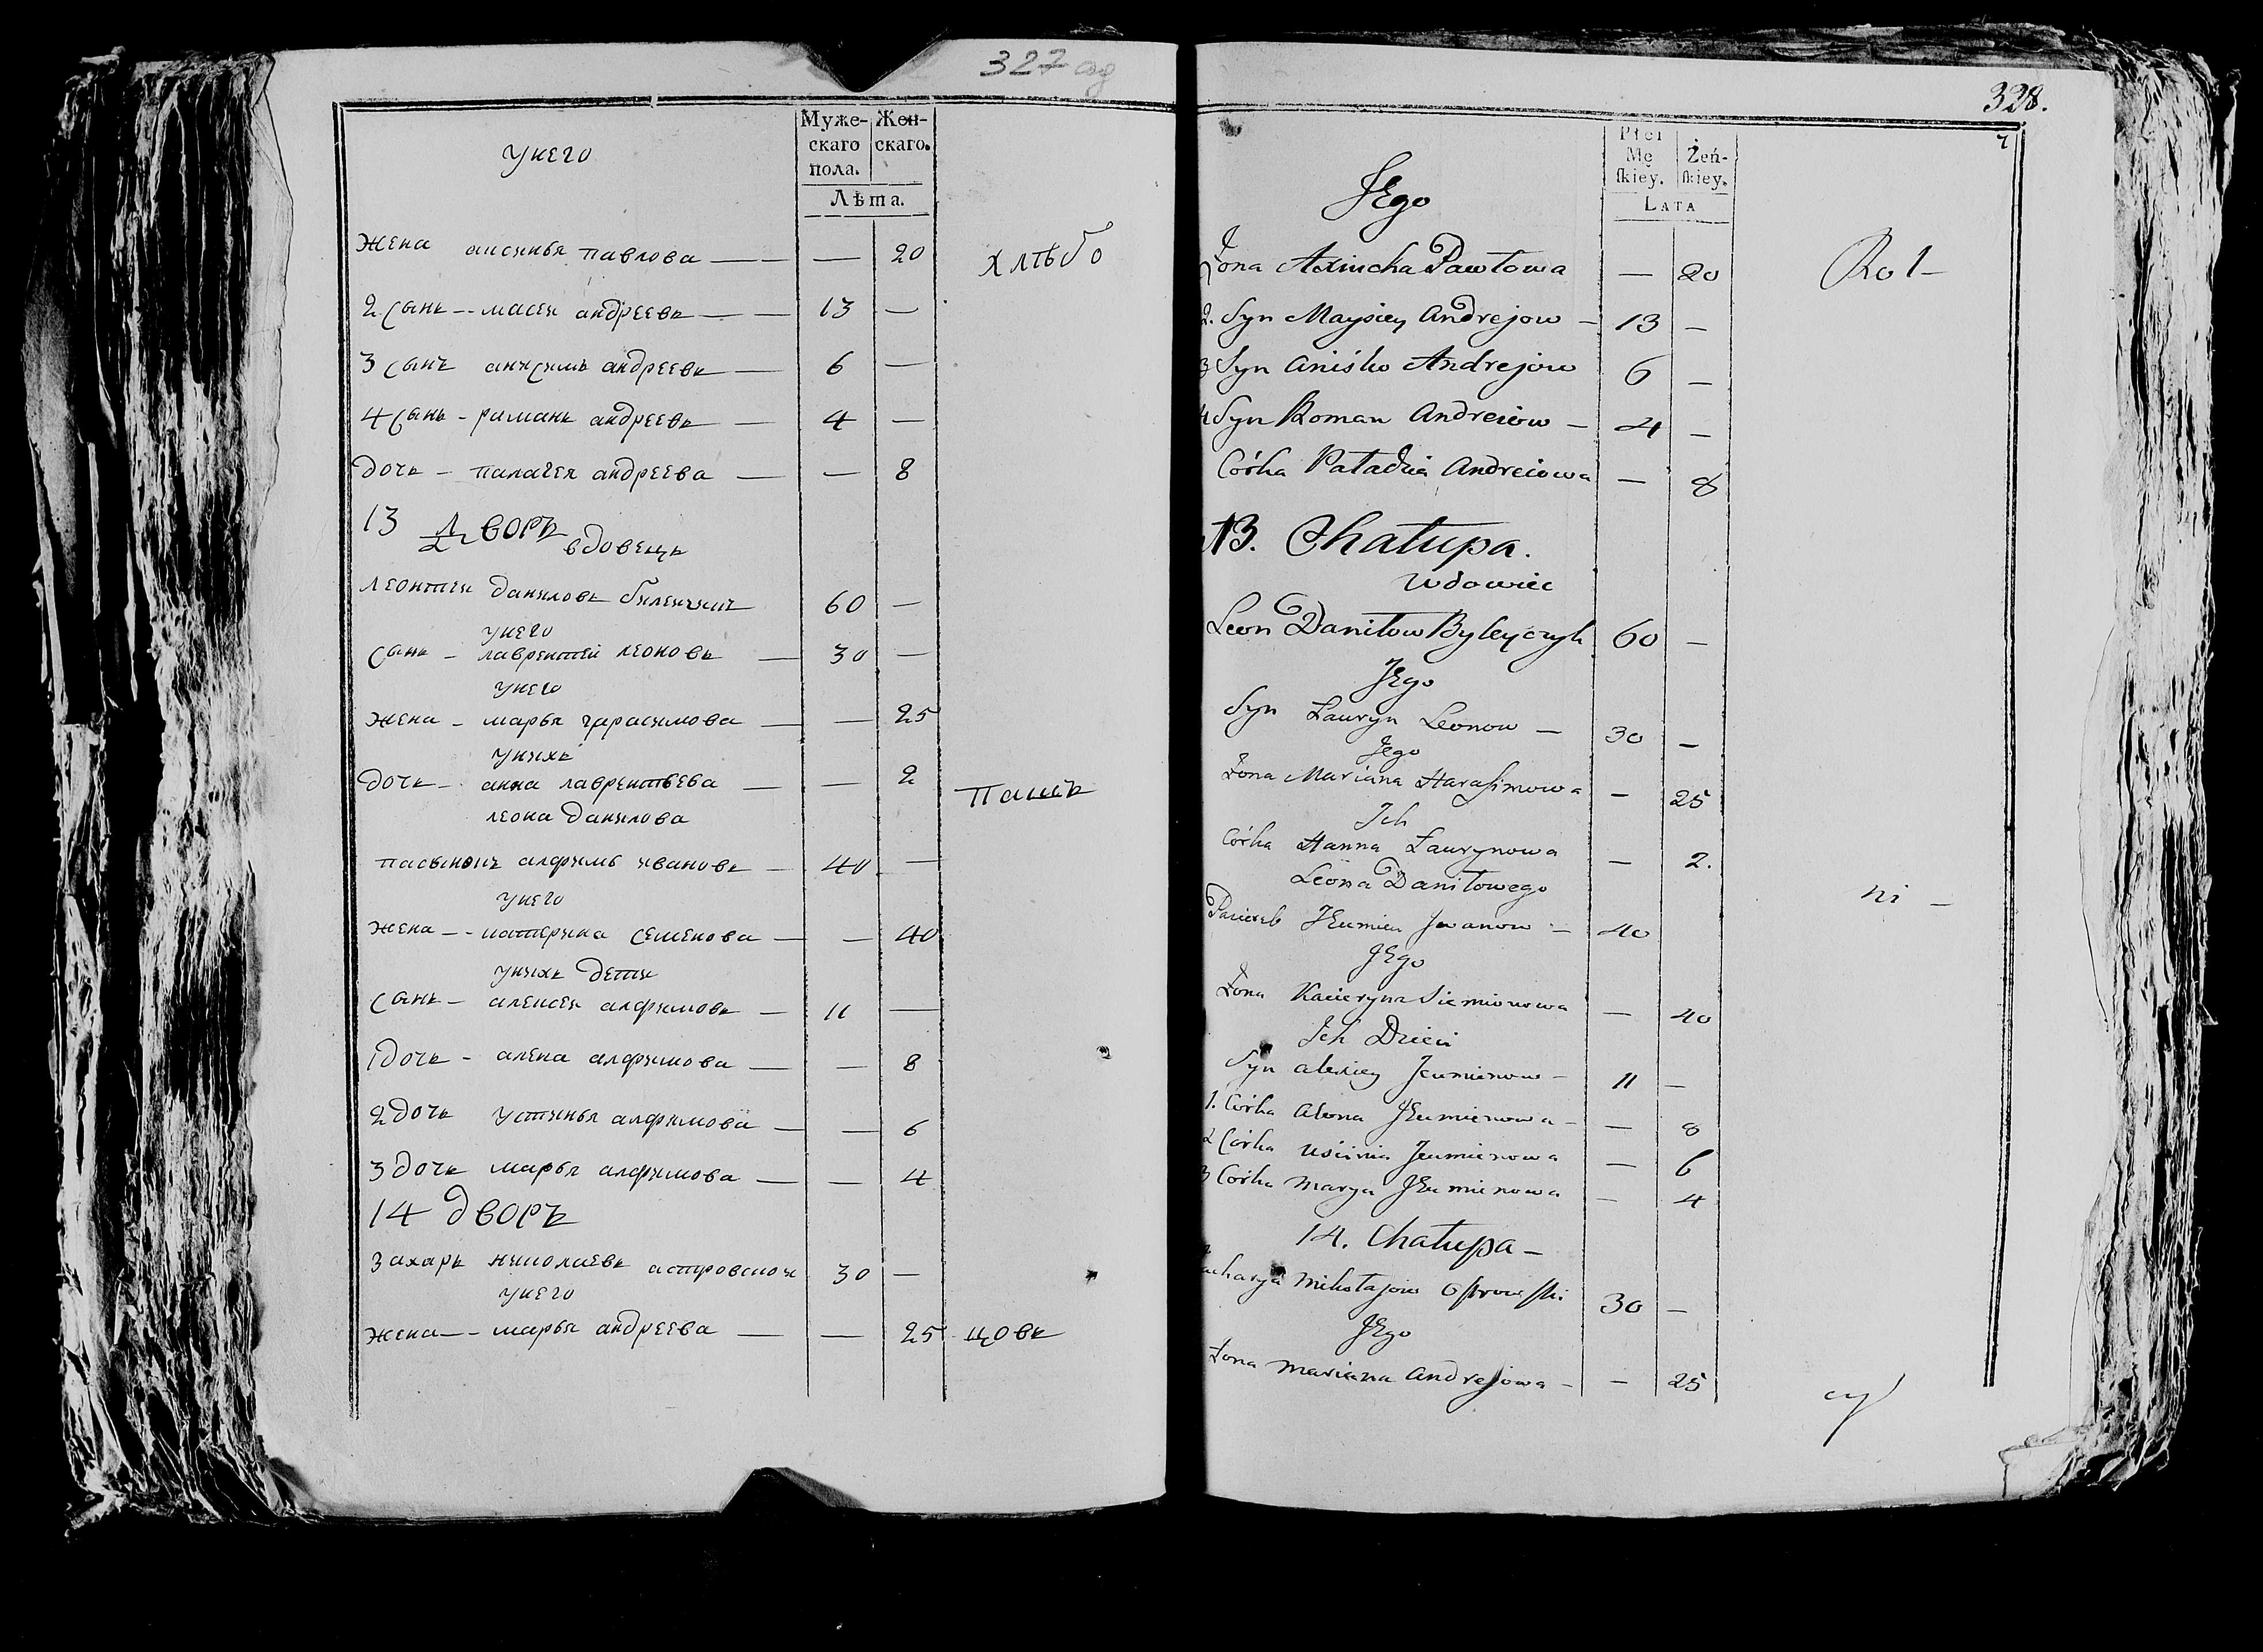 327 об
Муже- Жен-
скаго скаго.
пола.
Лѣта.
унего
жена аксинья павлова — — 20
хлѣбо
2 сынъ — масей андреевъ — 13 —
3 сынъ анисимъ андреевъ — 6 —
4 сынъ — романъ андреевъ — 4 —
дочь — палагея андреева — — 8
13 дворъ
вдовецъ
леонтей даниловъ билейчикъ 60 —
унего
сынъ — лаврентей леоновъ — 30 —
унего
жена — марья гарасимова — — 25
унихъ
дочь — анна лаврентьева — — 2
пашъ
леона данилова
пасынокъ алфимъ ивановъ — 40 —
унего
жена — катерина семенова — — 40
унихъ дети
сынъ — алексей алфимовъ — 11 —
1 дочь — алена алфимова — — 8
2 дочь устинья алфимова — — 6
3 дочь марья алфимова — — 4
14 дворъ
захаръ николаевъ астровской 30 —
унего
жена — марья андреева — — 25
цовъ
328.
7
Płci
Mę Żeń-
ſkiey. ſkiey.
LATA
Jego
Żona Axincha Pawłowa — 20
Rol-
2. Syn Maysiey Andrejow — 13 —
3 Syn Aniśko Andrejow 6 —
4 Syn Roman Andreiow — 4 —
Córka Paładzia Andreiowa — 8
13. Chałupa.
Wdowiec
Leon Daniłow Byleyczyk 60 —
Jego
Syn Lauryn Leonow — 30 —
Jego
Żona Mariana Harasimowa — 25
Ich
Córka Hanna Laurynowa — 2.
Leona Daniłowego
ni —
Pasierb Jeumien Jwanow — 40
Jego
Żona Kacieryna Siemionowa — 40
Ich Dzieci
Syn Alexiey Jeumienow — 11 —
1. Córka Alona Jeumienowa — — 8
2 Córka Uścinia Jeumienowa — 6
3 Córka Marya Jeumienowa — 4
14. Chałupa —
Zacharya Mikołajow Oſtrowſki 30 —
Jego
Żona Mariana Andrejowa — — 25
cy